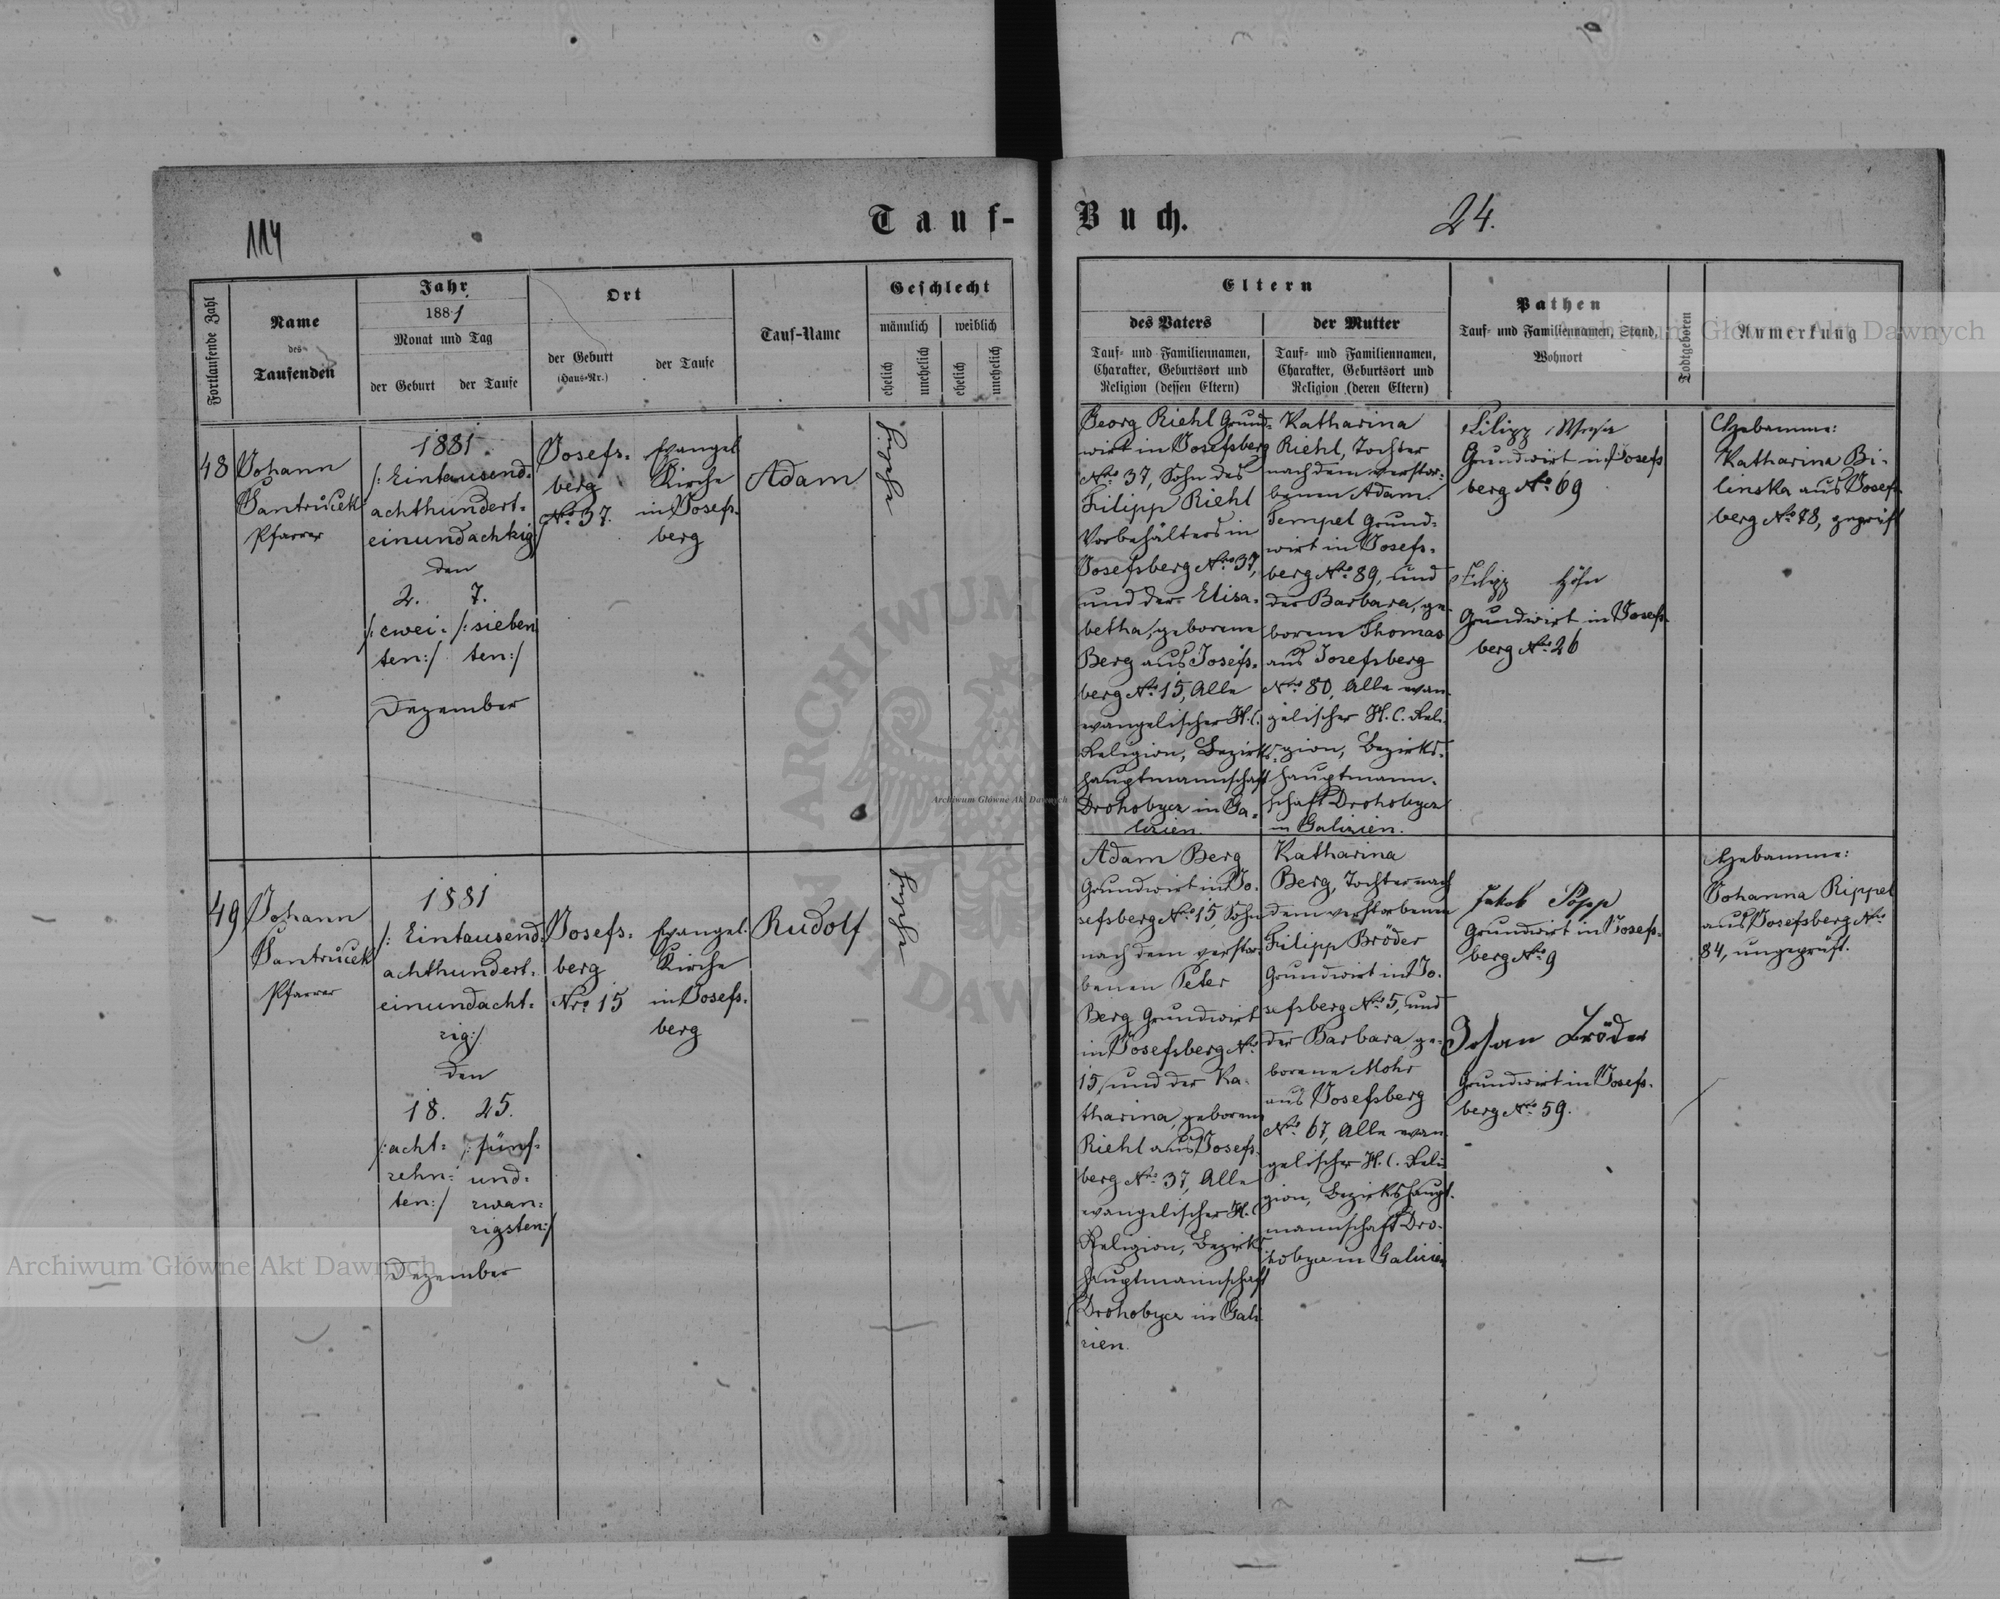 114
Tauf-
Buch.
24.
Fortlaufende Zahl
Name
des
Taufenden
Jahr
1881
Monat und Tag
der Geburt
der Taufe
Ort
der Geburt
(Haus-Nr.)
der Taufe
Tauf-Name
Geschlecht
männlich
weiblich
ehelich
unehelich
ehelich
unehelich
Eltern
des Vaters
Tauf- und Familiennamen,
Charakter, Geburtsort und
Religion (dessen Eltern)
der Mutter
Tauf- und Familiennamen,
Charakter, Geburtsort und
Religion (deren Eltern)
Pathen
Tauf- und Familiennamen, Stand,
Wohnort
Todtgeboren
Anmerkung
48
Johann
Santrůček
Pfarrer
1881
/: Eintausend-
achthundert-
einundachtzig:/
den
2. 7.
/: zwei: /: sieben
ten:/ ten:/
Dezember
Josefs-
berg
No. 37.
Evangel.
Kirche
in Josefs-
berg
Adam
Georg Riehl Grund-
wirt in Josefsberg
No. 37, Sohn des
Filipp Riehl
Vorbehälters in
Josefsberg Nro 37,
und der Elisa-
betha, geborene
Berg aus Josefs-
berg No. 15, Alle
evangelischer H. C.
Religion, Bezirks-
hauptmannschaft
Drohobycz in Ga-
lizien.
Katharina
Riehl, Tochter
nach dem verstor-
benen Adam
Tempel Grund-
wirt in Josefs-
berg No. 89, und
der Barbara, ge-
borene Thomas
aus Josefsberg
Nro. 80, Alle evan-
gelischer H. C. Reli-
gion, Bezirks-
hauptmann-
schaft Drohobycz
in Galizien.
Filipp
Grundwirt in Josefs
berg No. 69
Filipp Höhn
Grundwirt in Josefs-
berg No. 26
Hebamme:
Katharina Bi-
linska aus Josefs-
berg No. 78, geprüft
49
Johann
Santrůček
Pfarrer
1881
/: Eintausend-
achthundert-
einundacht-
zig:/
den
18. 25.
/: acht- /: fünf-
zehn- und-
ten:/ zwan-
zigsten:/
Dezember
Josefs-
berg
Nro 15
Evangel.
Kirche
in Josefs-
berg
Rudolf
Adam Berg
Grundwirt in Jo-
sefsberg No. 15, Sohn
nach dem verstor-
benen Peter
Berg Grundwirt
in Josefsberg No.
15, und der Ka-
tharina, geborene
Riehl aus Josefs-
berg No. 37, Alle
evangelischer H. C.
Religion, Bezirks-
hauptmannschaft
Drohobycz in Gali-
zien.
Katharina
Berg, Tochter nach
dem verstorbenen
Filipp Bröder
Grundwirt in Jo-
sefsberg No. 5, und
der Barbara ge-
borene Mohr
aus Josefsberg
No. 67, Alle evan-
gelischer H. C. Reli-
gion, Bezirkshaupt-
mannschaft Dro-
hobycz in Galizien
Jakob Popp
Grundwirt in Josefs-
berg No. 9
Johan Bröder
Grundwirt in Josefs-
berg No. 59.
Hebamme:
Johanna Rippel
aus Josefsberg No.
84, ungeprüft.
Archiwum Główne Akt Dawnych
Archiwum Główne Akt Dawnych
Archiwum Główne Akt Dawnych